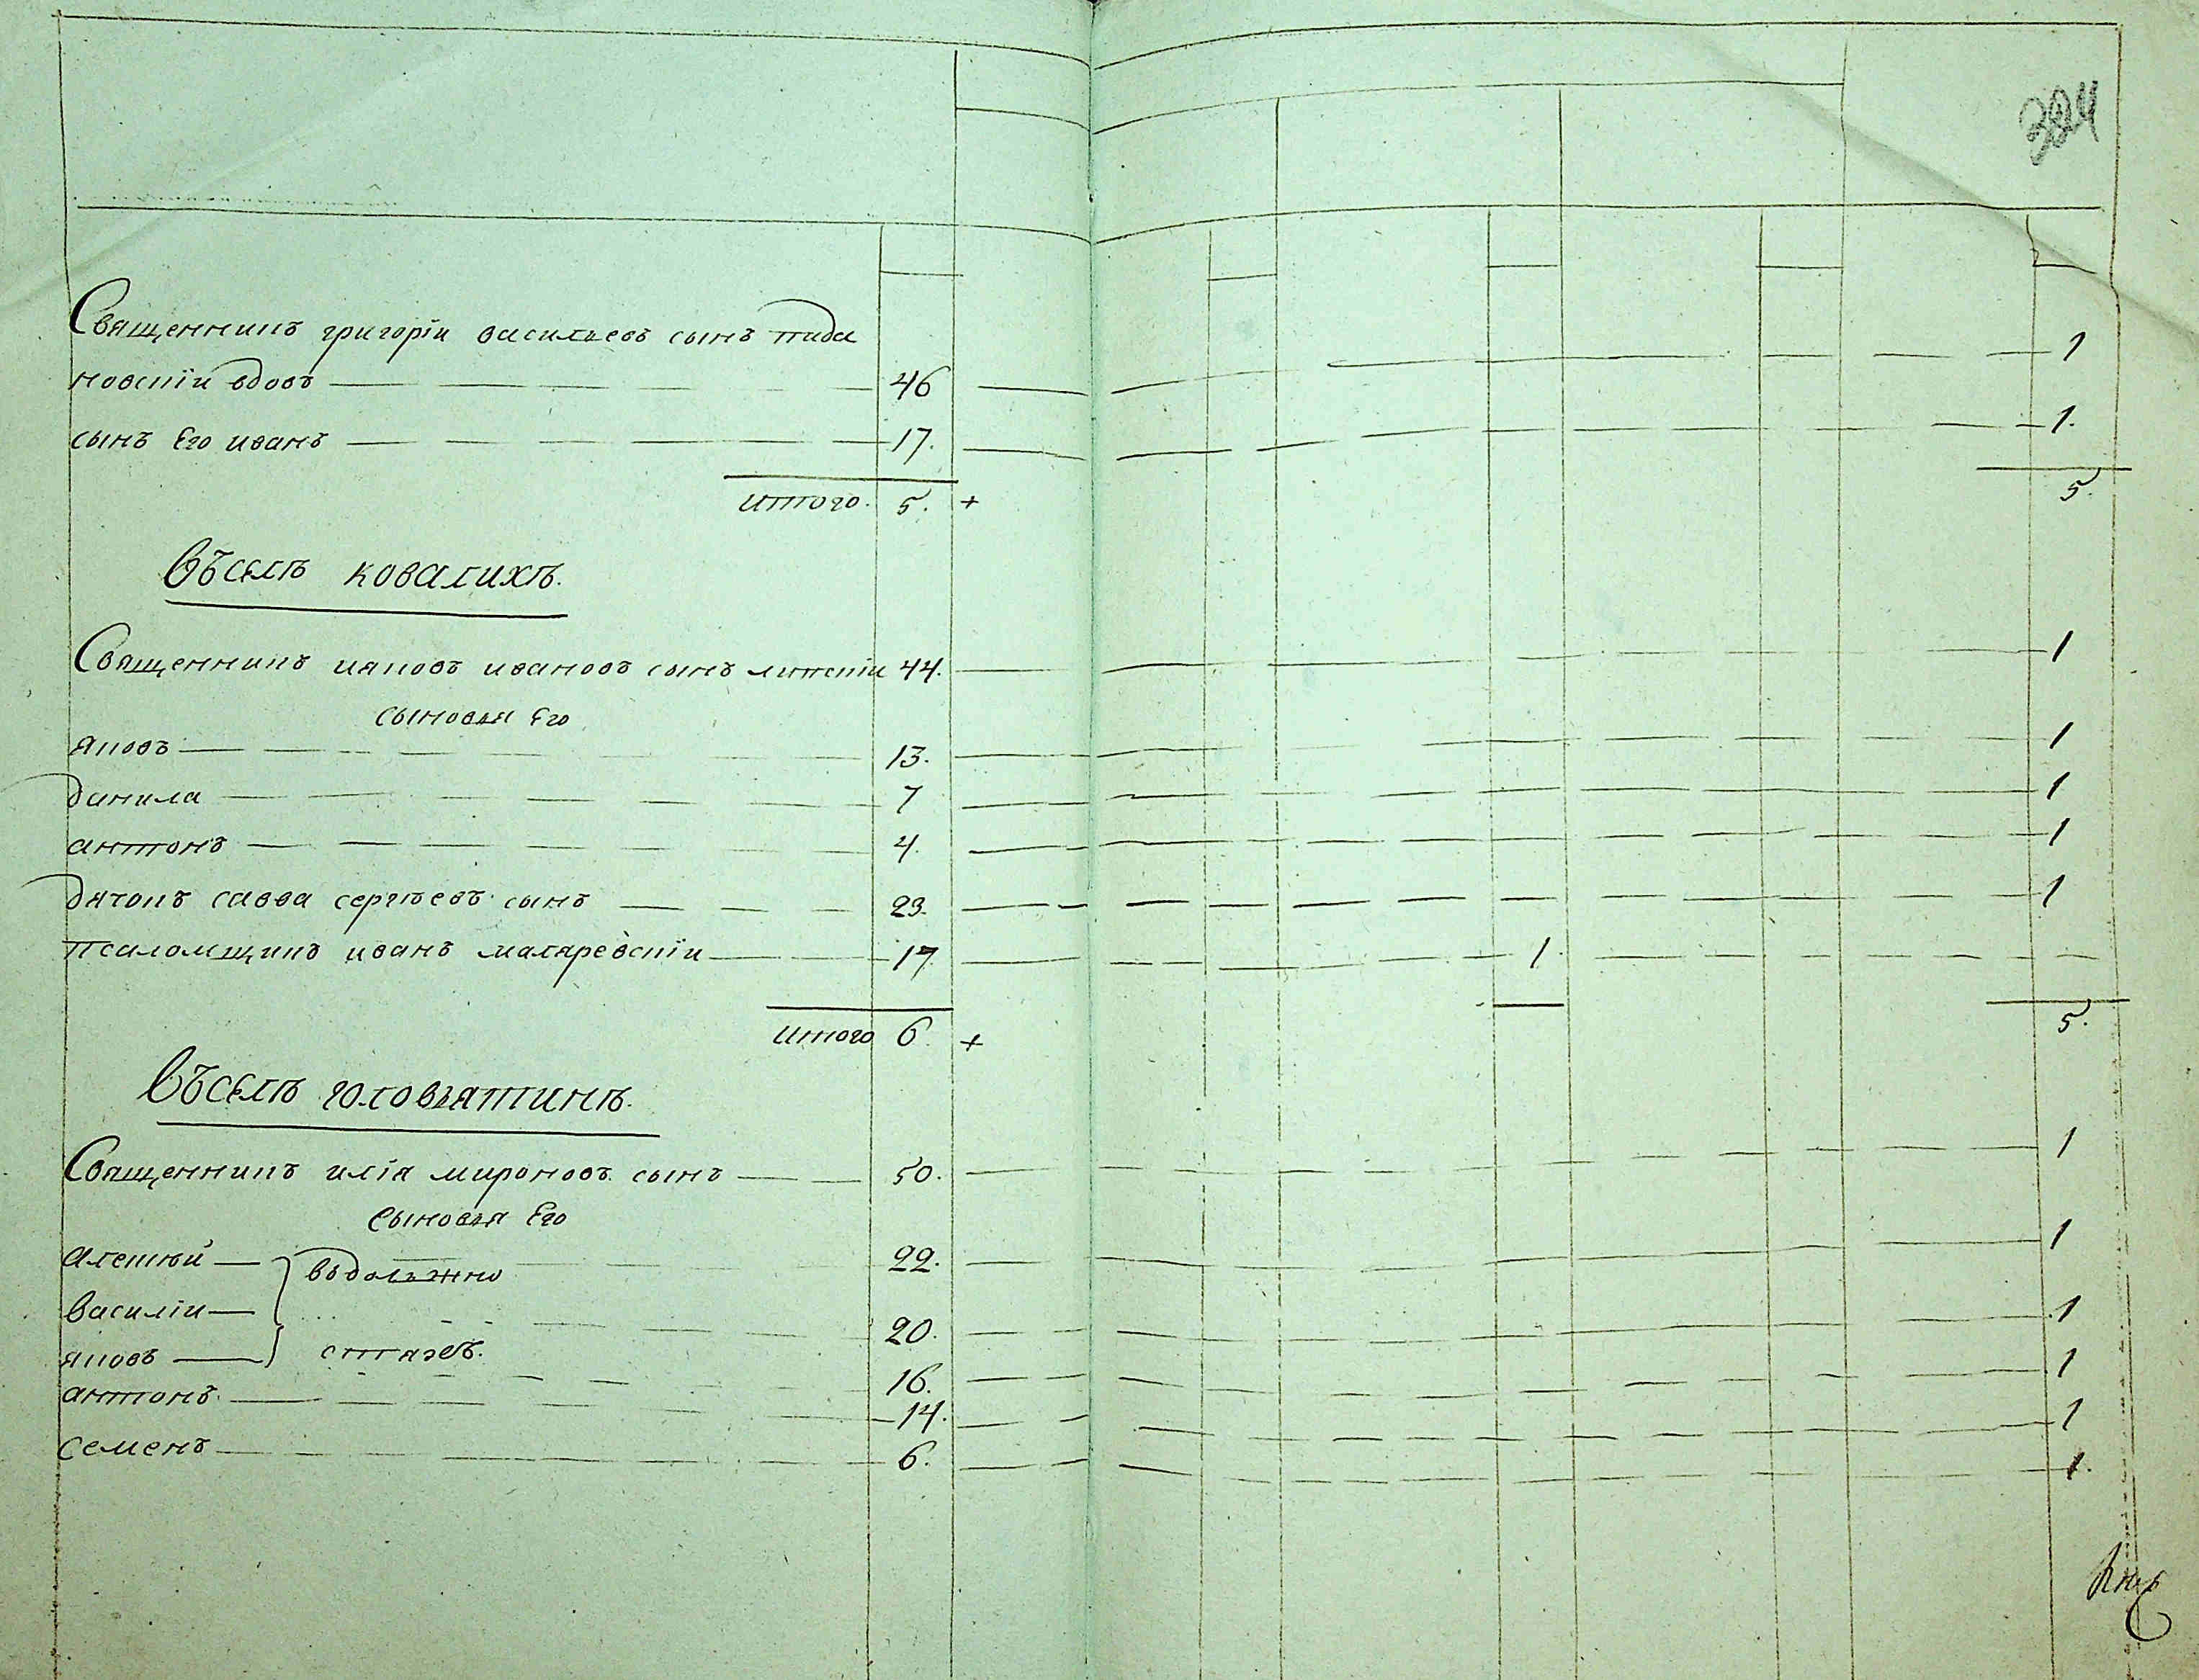 324
Священникъ григорїи васильевъ сынъ пида
новскїи вдовъ 46 1
сынъ Его иванъ 17. 1.
итого. 5. + 5.
въ селѣ ковалихѣ.
Священникъияковъ ивановъ сынъ липскїи 44. 1
сыновья Его
яковъ 13. 1
данила 7 1
антонъ 4. 1
дячокъ савва сергѣевъ сынъ 23. 1
псаломщикъ иванъ маляревскїи 17 1.
итого 6. + 5.
въ селѣ головятинѣ.
Священникъ илїя мироновъ сынъ 50. 1
Сыновья Его
алексѣй 22. 1
василїи 20. 1
яковъ 16. 1
антонъ 14. 1
семенъ 6. 1.